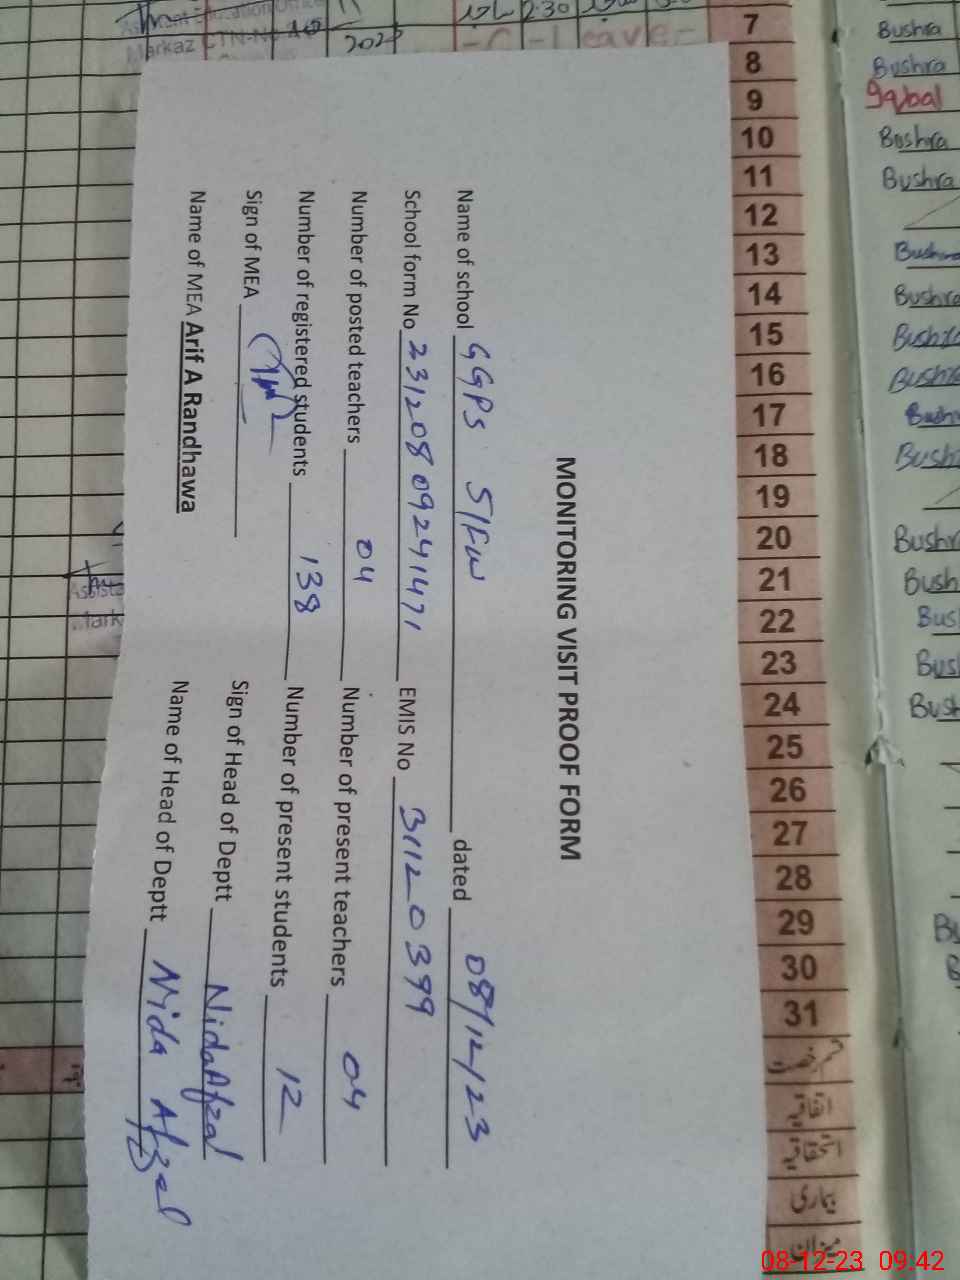 MONITORING VISIT PROOF FORM
Name of school GGPS 5/FW dated 08/12/23
School form No 231208 09241471 EMIS No 31120399
Number of posted teachers 04 Number of present teachers 04
Number of registered students 138 Number of present students 12
Sign of MEA Sign of Head of Deptt Nida Afzal
Name of MEA Arif A Randhawa Name of Head of Deptt Nida Afzal
Markaz CTN-No
2023
2:30
-C-Leave-
7 Bushra
8 Bushra
9 Iqbal
10 Bushra
11 Bushra
12
13 Bushra
14 Bushra
15 Bushra
16 Bushra
17 Bushra
18 Bush
19
20 Bushra
21 Bush
22 Bus
23 Bus
24 Bush
25
26
27
28
29 Bu
30
31
اتفاقیہ
استحقاقیہ
بیماری
میزان
Assista
Mark
08-12-23 09:42